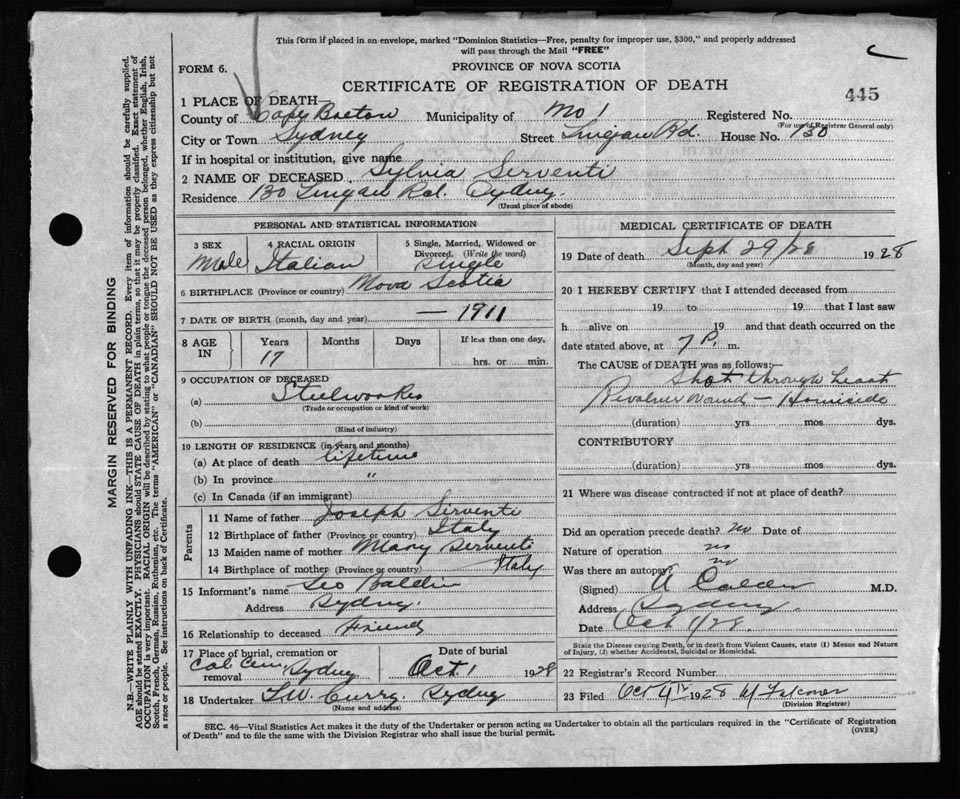 This form if placed in an envelope, marked "Dominion Statistics—Free, penalty for improper use, $300," and properly addressed
will pass through the Mail "FREE"
FORM 6.
PROVINCE OF NOVA SCOTIA
CERTIFICATE OF REGISTRATION OF DEATH
445
1 PLACE OF DEATH—
County of Cape Breton Municipality of No 1 Registered No.
(For use of Registrar General only)
City or Town Sydney Street Lingan Rd. House No. 130
If in hospital or institution, give name
2 NAME OF DECEASED Sylvia Serventi
Residence 130 Lingan Rd. Sydney.
(Usual place of abode)
PERSONAL AND STATISTICAL INFORMATION
3 SEX Male
4 RACIAL ORIGIN Italian
5 Single, Married, Widowed or
Divorced. (Write the word)
Single
6 BIRTHPLACE (Province or country) Nova Scotia
7 DATE OF BIRTH (month, day and year) — 1911
8 AGE IN Years Months Days If less than one day,
17 hrs. or min.
9 OCCUPATION OF DECEASED
(a) Steelworker
(Trade or occupation or kind of work)
(b)
(Kind of industry)
10 LENGTH OF RESIDENCE (in years and months)
(a) At place of death lifetime
(b) In province "
(c) In Canada (if an immigrant)
Parents
11 Name of father Joseph Serventi
12 Birthplace of father (Province or country) Italy
13 Maiden name of mother Mary Serventi
14 Birthplace of mother (Province or country) Italy
15 Informant's name Leo Baldin
Address Sydney.
16 Relationship to deceased Friend
17 Place of burial, cremation or removal Cal Cem. Sydney
Date of burial Oct. 1 1928
18 Undertaker L.W. Curry. Sydney
(Name and address)
MEDICAL CERTIFICATE OF DEATH
19 Date of death Sept 29/28 1928
(Month, day and year)
20 I HEREBY CERTIFY that I attended deceased from
19 to 19 that I last saw
h alive on 19 and that death occurred on the
date stated above, at 7 P. m.
The CAUSE of DEATH was as follows:—
Shot through heart
Revolver wound — Homicide
(duration) yrs. mos. dys.
CONTRIBUTORY
(duration) yrs. mos. dys.
21 Where was disease contracted if not at place of death?
Did an operation precede death? no Date of
Nature of operation no
Was there an autopsy? no
(Signed) A Calder M.D.
Address Sydney
Date Oct 1/28.
State the Disease causing Death, or in death from Violent Causes, state (1) Means and Nature
of Injury, (2) whether Accidental, Suicidal or Homicidal.
22 Registrar's Record Number
23 Filed Oct 4th 1928 W Falconer
(Division Registrar)
SEC. 46—Vital Statistics Act makes it the duty of the Undertaker or person acting as Undertaker to obtain all the particulars required in the "Certificate of Registration
of Death" and to file the same with the Division Registrar who shall issue the burial permit.
(OVER)
MARGIN RESERVED FOR BINDING
N.B.—WRITE PLAINLY WITH UNFADING INK—THIS IS A PERMANENT RECORD. Every item of information should be carefully supplied.
AGE should be stated EXACTLY. PHYSICIANS should STATE CAUSE OF DEATH in plain terms, so that it may be properly classified. Exact statement of
OCCUPATION is very important. RACIAL ORIGIN will be described by stating to what people or tongue the deceased person belonged, whether English, Irish,
Scotch, French, German, Russian, Ruthenian, etc. The terms "AMERICAN" or "CANADIAN" SHOULD NOT BE USED as they express citizenship but not
a race or people. See instructions on back of Certificate.